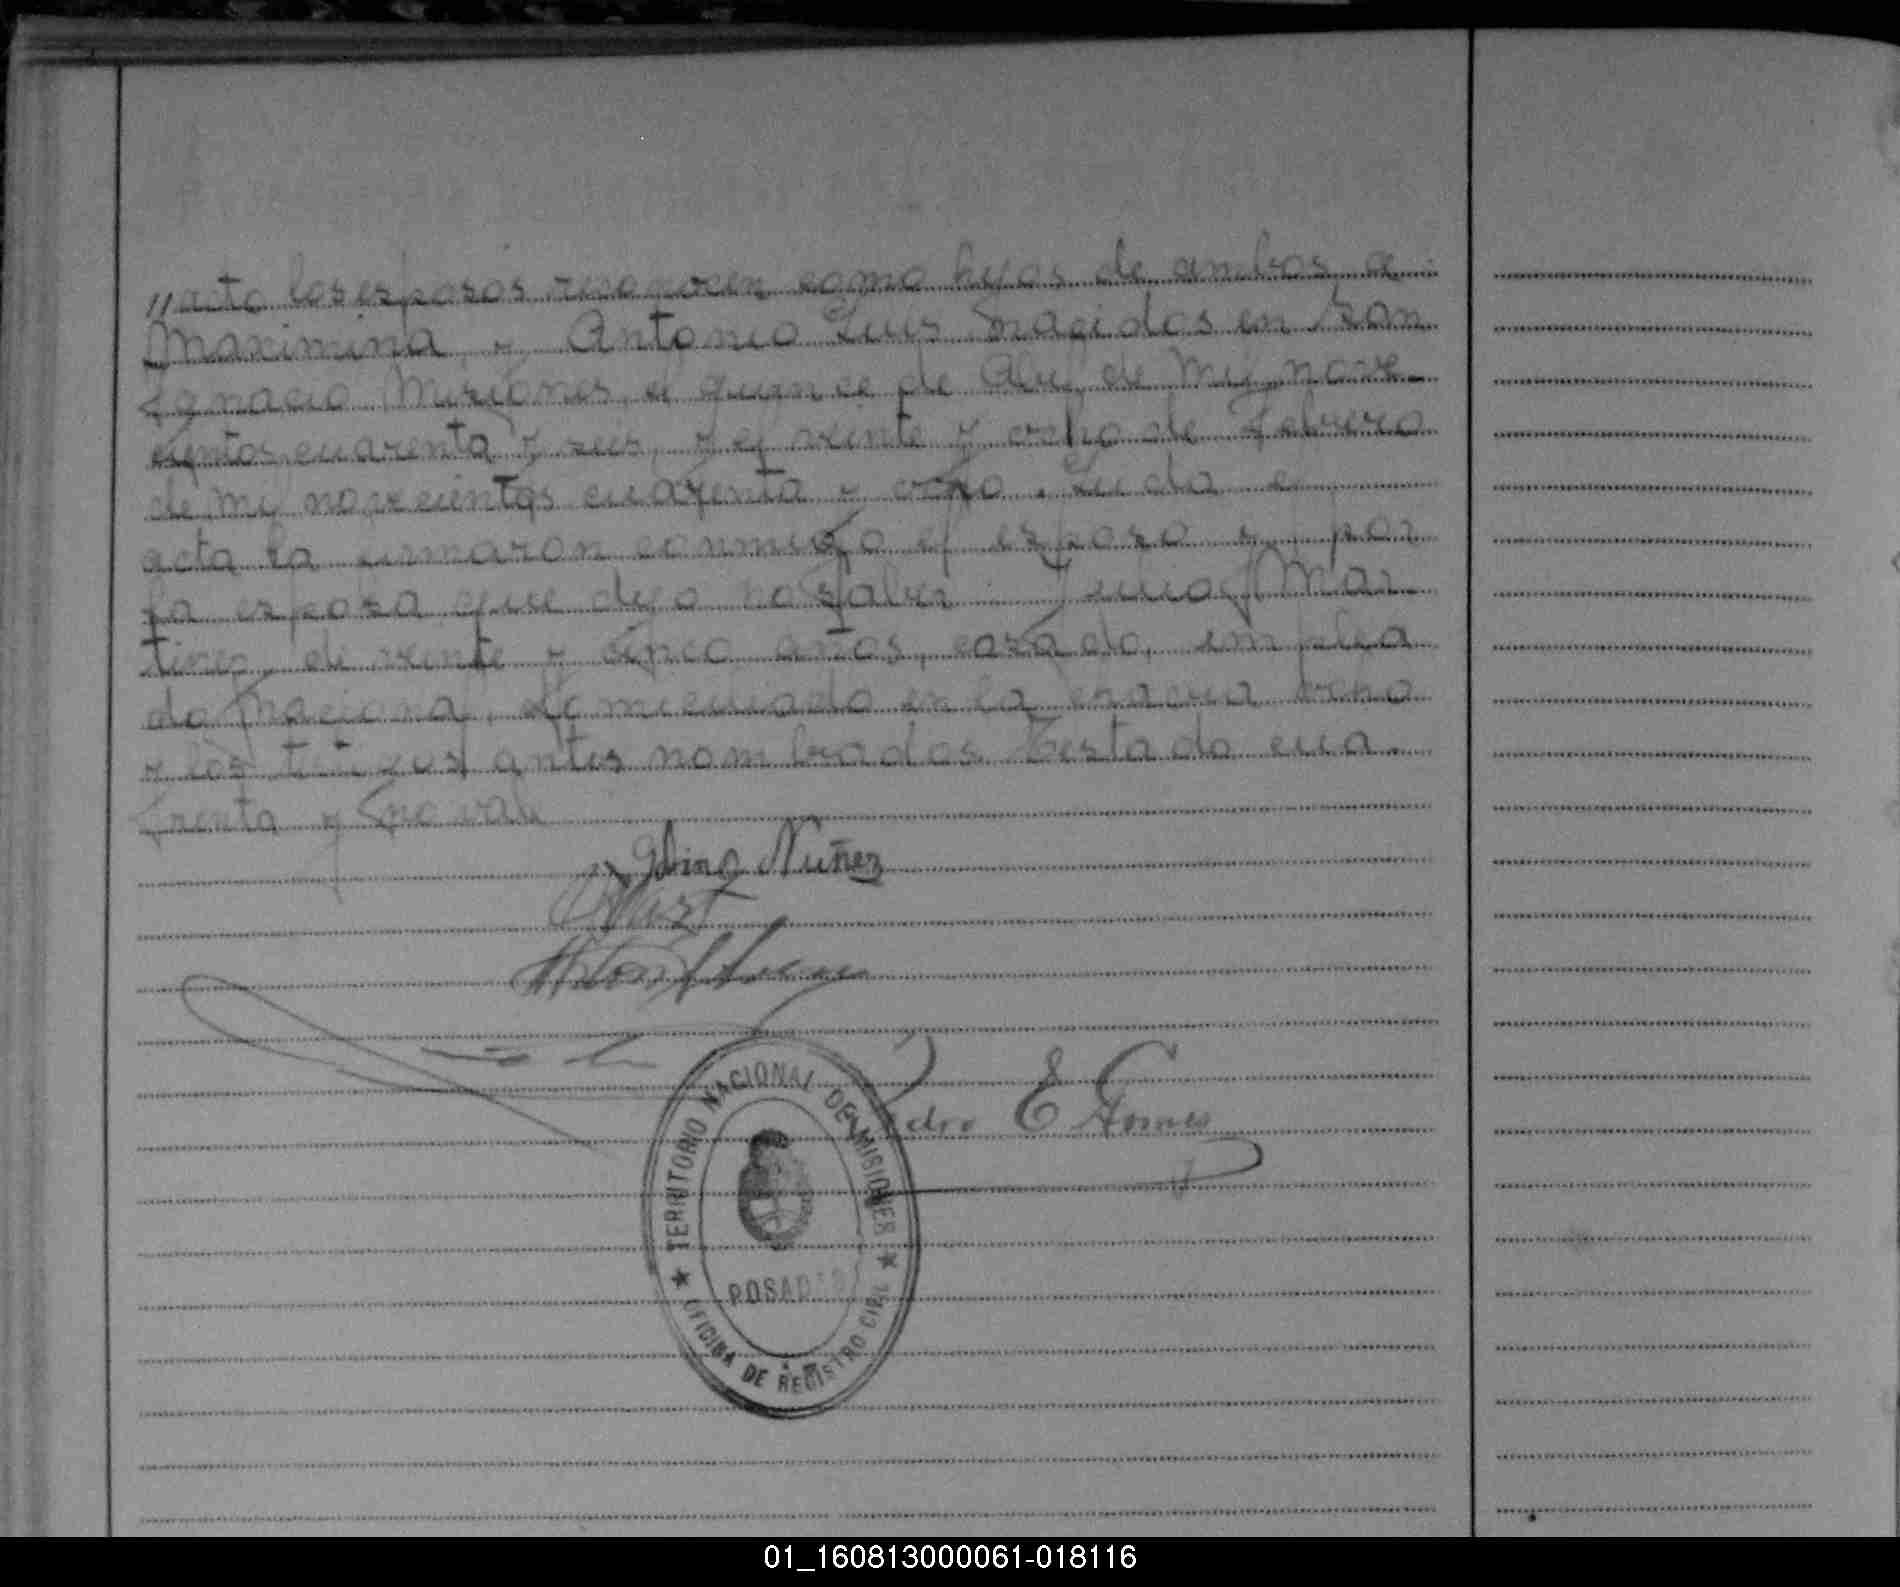 "acto los esposos reconocen como hijos de ambos a
Maximina y Antonio Luis nacidos en San
Ignacio Misiones el quince de Abril de mil nove-
cientos cuarenta y seis, y el veinte y ocho de Febrero
de mil novecientos cuarenta y ocho. Leida el
acta la firmaron conmigo el esposo y por
la esposa que dijo no saber Mar-
tires, de veinte y cinco años, casado, emplea
do Nacional, domiciliado en la chacra ocho
y los testigos antes nombrados Testado cua-
renta y no vale
Núñez
Pedro E Gomes
TERRITORIO NACIONAL DE MISIONES
POSADAS
OFICINA DE REGISTRO CIVIL
01_160813000061-018116